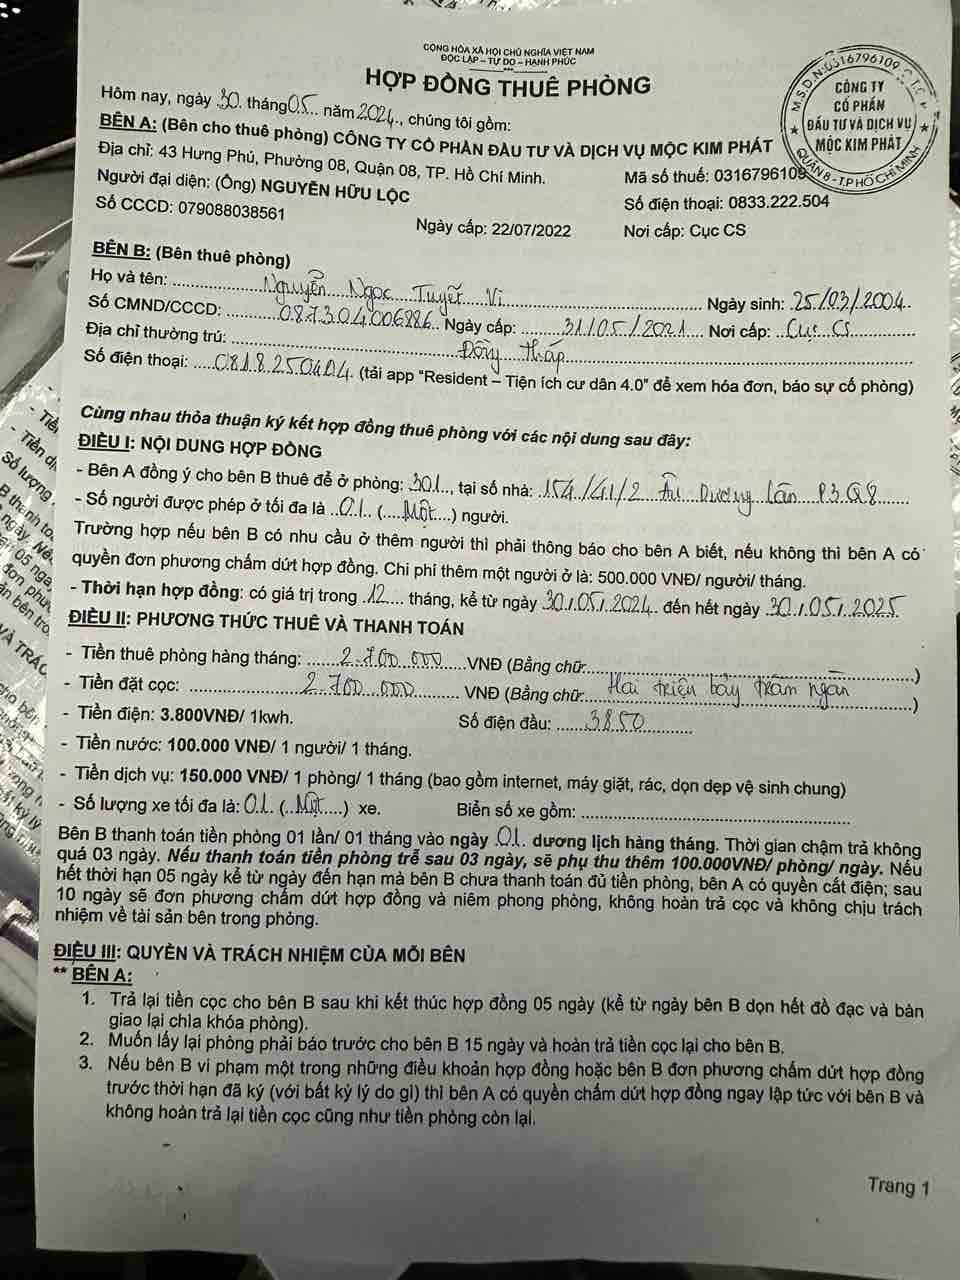 CỘNG HÒA XÃ HỘI CHỦ NGHĨA VIỆT NAM
ĐỘC LẬP – TỰ DO – HẠNH PHÚC
HỢP ĐỒNG THUÊ PHÒNG
M.S.D.N:0316796109
CÔNG TY
CỔ PHẦN
ĐẦU TƯ VÀ DỊCH VỤ
MỘC KIM PHÁT
QUẬN 8 - T.P HỒ CHÍ MINH
Hôm nay, ngày 30. tháng 05... năm 2024., chúng tôi gồm:
BÊN A: (Bên cho thuê phòng) CÔNG TY CỔ PHẦN ĐẦU TƯ VÀ DỊCH VỤ MỘC KIM PHÁT
Địa chỉ: 43 Hưng Phú, Phường 08, Quận 08, TP. Hồ Chí Minh. Mã số thuế: 0316796109
Người đại diện: (Ông) NGUYỄN HỮU LỘC Số điện thoại: 0833.222.504
Số CCCD: 079088038561 Ngày cấp: 22/07/2022 Nơi cấp: Cục CS
BÊN B: (Bên thuê phòng)
Họ và tên: Nguyễn Ngọc Tuyết Vi Ngày sinh: 25/03/2004
Số CMND/CCCD: 087304006886 Ngày cấp: 31/05/2021 Nơi cấp: Cục CS
Địa chỉ thường trú: Đồng Tháp
Số điện thoại: 0818250404. (tải app "Resident – Tiện ích cư dân 4.0" để xem hóa đơn, báo sự cố phòng)
Cùng nhau thỏa thuận ký kết hợp đồng thuê phòng với các nội dung sau đây:
ĐIỀU I: NỘI DUNG HỢP ĐỒNG
- Bên A đồng ý cho bên B thuê để ở phòng: 301.., tại số nhà: 154/41/2 Âu Dương Lân P3.Q8
- Số người được phép ở tối đa là ..01.. (....Một....) người.
Trường hợp nếu bên B có nhu cầu ở thêm người thì phải thông báo cho bên A biết, nếu không thì bên A có
quyền đơn phương chấm dứt hợp đồng. Chi phí thêm một người ở là: 500.000 VNĐ/ người/ tháng.
- Thời hạn hợp đồng: có giá trị trong .12.... tháng, kể từ ngày 30/05/2024.. đến hết ngày 30/05/2025
ĐIỀU II: PHƯƠNG THỨC THUÊ VÀ THANH TOÁN
- Tiền thuê phòng hàng tháng: 2.700.000 VNĐ (Bằng chữ.....)
- Tiền đặt cọc: 2.700.000 VNĐ (Bằng chữ Hai triệu bảy trăm ngàn)
- Tiền điện: 3.800VNĐ/ 1kwh. Số điện đầu: 3850
- Tiền nước: 100.000 VNĐ/ 1 người/ 1 tháng.
- Tiền dịch vụ: 150.000 VNĐ/ 1 phòng/ 1 tháng (bao gồm internet, máy giặt, rác, dọn dẹp vệ sinh chung)
- Số lượng xe tối đa là: 01. (..Một....) xe. Biển số xe gồm:
Bên B thanh toán tiền phòng 01 lần/ 01 tháng vào ngày 01. dương lịch hàng tháng. Thời gian chậm trả không
quá 03 ngày. Nếu thanh toán tiền phòng trễ sau 03 ngày, sẽ phụ thu thêm 100.000VNĐ/ phòng/ ngày. Nếu
hết thời hạn 05 ngày kể từ ngày đến hạn mà bên B chưa thanh toán đủ tiền phòng, bên A có quyền cắt điện; sau
10 ngày sẽ đơn phương chấm dứt hợp đồng và niêm phong phòng, không hoàn trả cọc và không chịu trách
nhiệm về tài sản bên trong phòng.
ĐIỀU III: QUYỀN VÀ TRÁCH NHIỆM CỦA MỖI BÊN
** BÊN A:
1. Trả lại tiền cọc cho bên B sau khi kết thúc hợp đồng 05 ngày (kể từ ngày bên B dọn hết đồ đạc và bàn
giao lại chìa khóa phòng).
2. Muốn lấy lại phòng phải báo trước cho bên B 15 ngày và hoàn trả tiền cọc lại cho bên B.
3. Nếu bên B vi phạm một trong những điều khoản hợp đồng hoặc bên B đơn phương chấm dứt hợp đồng
trước thời hạn đã ký (với bất kỳ lý do gì) thì bên A có quyền chấm dứt hợp đồng ngay lập tức với bên B và
không hoàn trả lại tiền cọc cũng như tiền phòng còn lại.
Trang 1